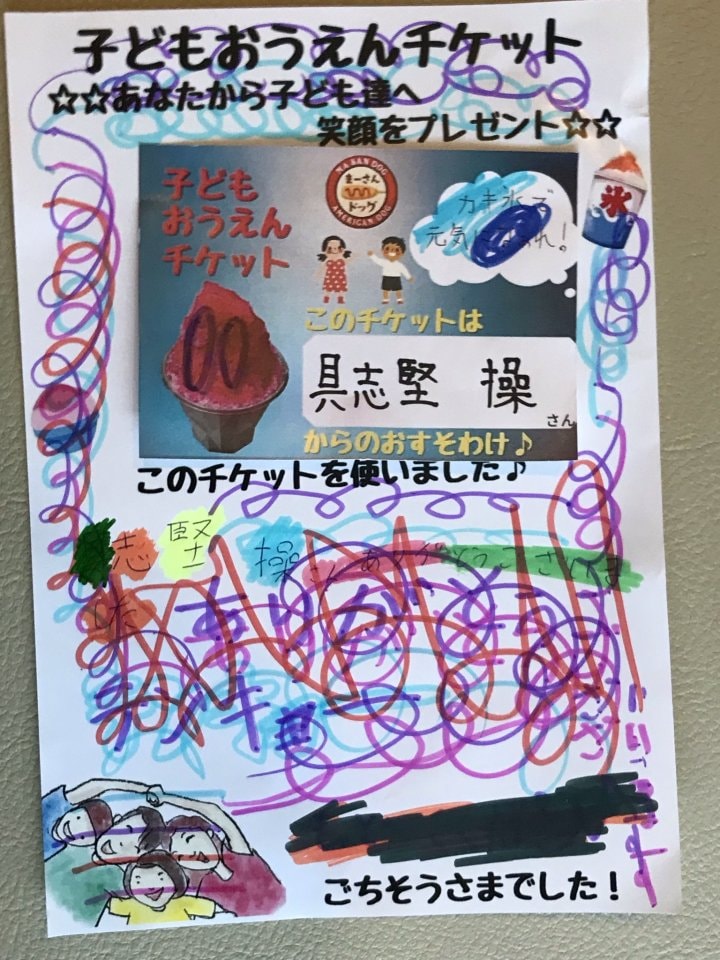 子どもおうえんチケット
☆☆あなたから子ども達へ
笑顔をプレゼント☆☆
子ども
おうえん
チケット
MASAN DOG
まーさん
ドッグ
AMERICAN DOG
カキ氷で
元気に
れ!
氷
このチケットは
具志堅 操
さん
からのおすそわけ♪
このチケットを使いました♪
志堅 操さんありがとうございま
した
ありがとう
ごちそうさまでした!